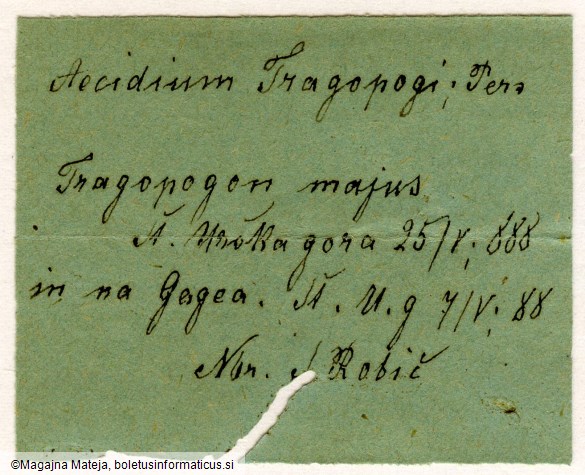 Aecidium Tragopogi; Pers
Tragopogon majus
Št. Urška gora 25/V; 888
in na Gagea. Št. U. g 7/V; 88
Nbr. S Robič
©Magajna Mateja, boletusinformaticus.si